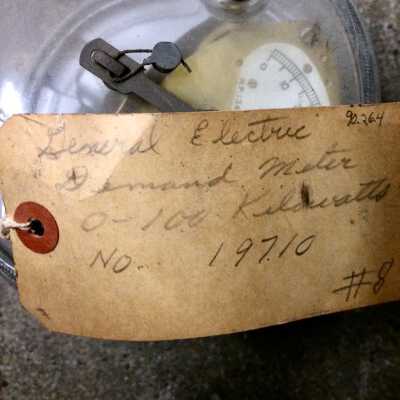 92.26.4
General Electric
Demand Meter
0-100 Kilowatts
No. 19710
#8